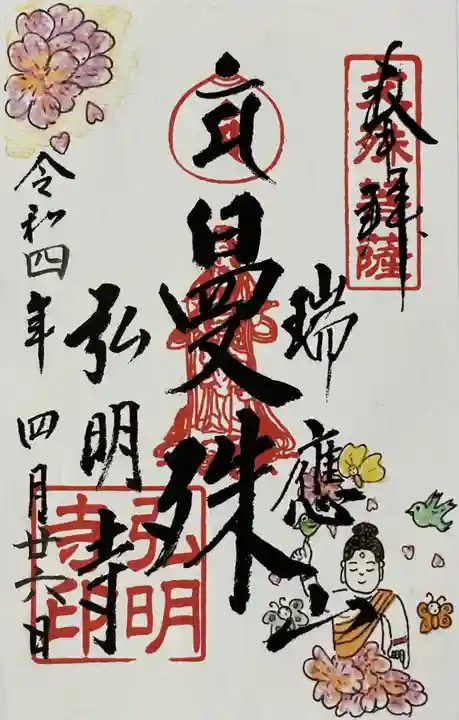 奉拝
文殊菩薩
瑞應山
曼殊
弘明寺
弘明寺印
令和四年 四月廿六日